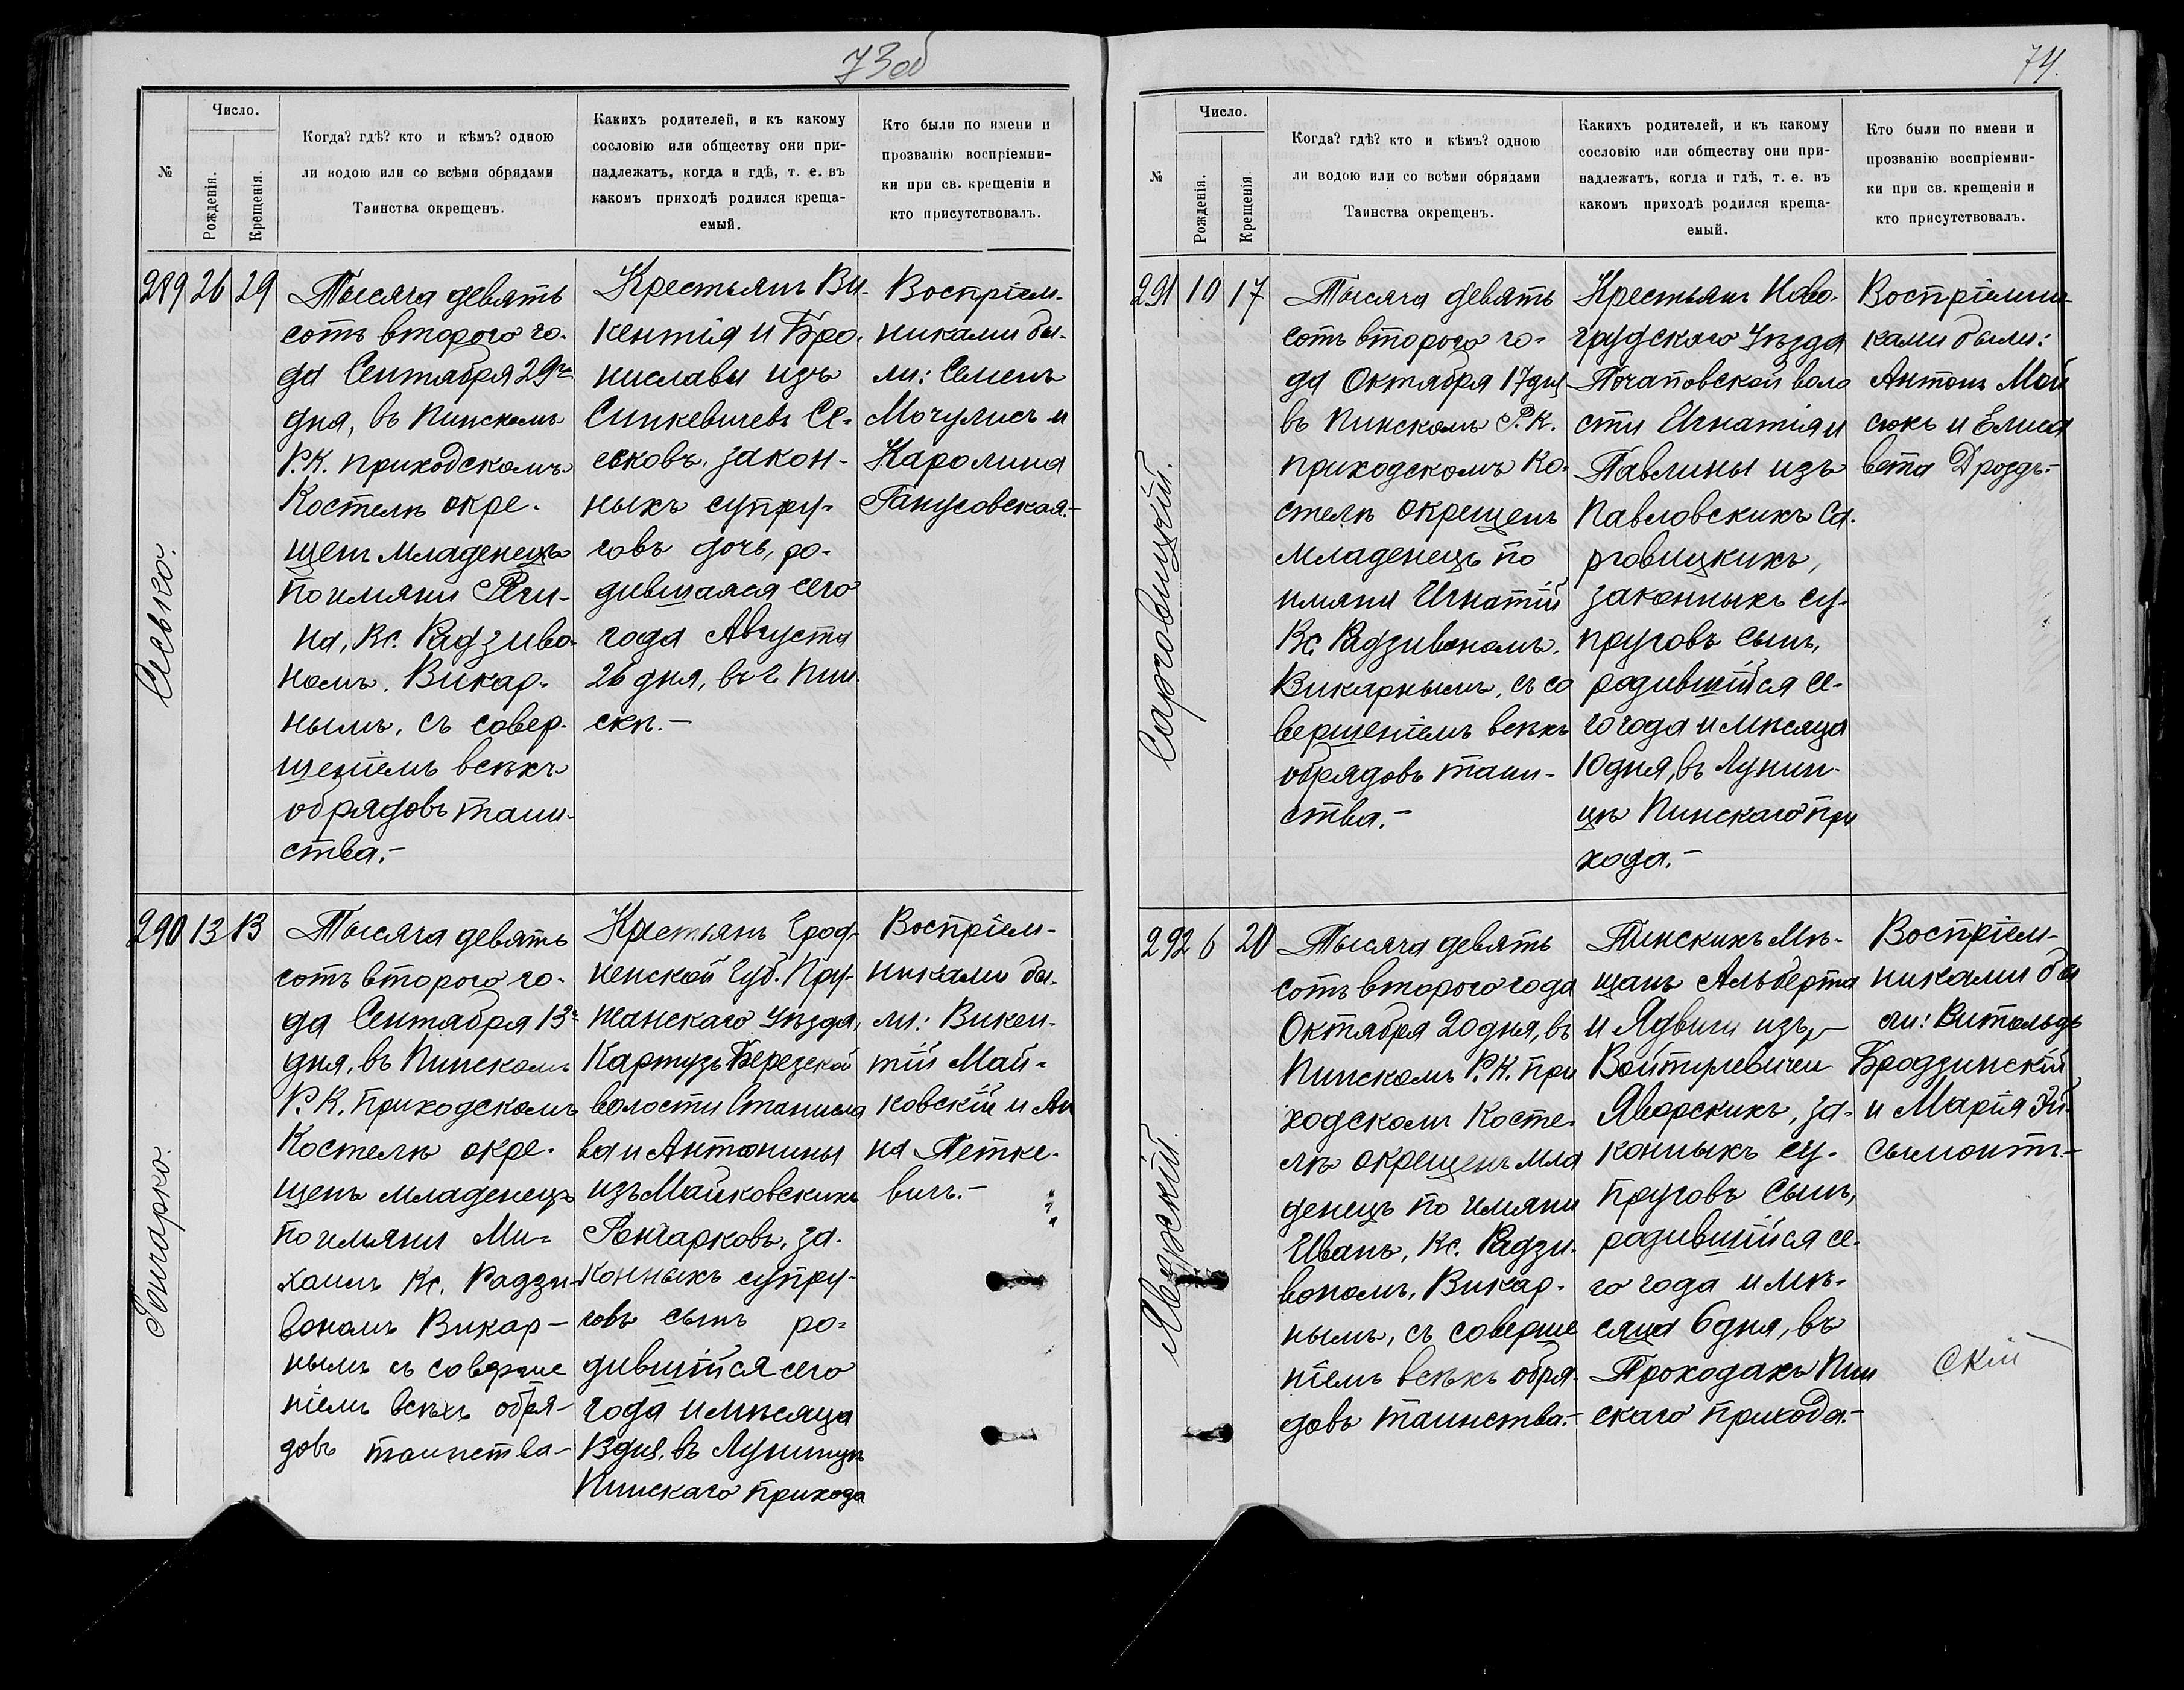 73 об
№
Число.
Рожденія.
Крещенія.
Когда? гдѣ? кто и кѣмъ? одною
ли водою или со всѣми обрядами
Таинства окрещенъ.
Какихъ родителей, и къ какому
сословію или обществу они при-
надлежатъ, когда и гдѣ, т. е. въ
какомъ приходѣ родился креща-
емый.
Кто были по имени и
прозванію воспріемни-
ки при св. крещеніи и
кто присутствовалъ.
289 26 29
Сесько.
Тысяча девять
сотъ второго го-
да Сентября 29го
дня, въ Пинскомъ
Р.К. приходскомъ
Костелѣ окре-
щенъ младенецъ
по имяни Реги-
на, Кс. Радзиво-
номъ, Викар-
нымъ, съ совер-
шеніемъ всѣхъ
обрядовъ таин-
ства.-
Крестьянъ Ви-
кентія и Бро-
ниславы изъ
Синкевичевъ Се-
ськовъ, закон-
ныхъ супру-
говъ дочь, ро-
дившаяся сего
года Августа
26 дня, въ г. Пин-
скѣ.-
Воспріем-
никами бы-
ли: Семенъ
Мочулисъ и
Каролина
Ганусовская.-
290 13 13
Гончарко.
Тысяча девять
сотъ второго го-
да Сентября 13г
дня, въ Пинскомъ
Р.К. приходскомъ
Костелѣ окре-
щенъ младенецъ
по имяни Ми-
хаилъ Кс. Радзи-
вономъ Викар-
нымъ съ соверше
ніемъ всѣхъ обря-
довъ таинства-
Крестьянъ Грод-
ненской Губ. Пру-
жанскаго уѣзда,
Картузъ Березской
волости Станисла
ва и Антонины
изъ Майковскихъ
Гончарковъ, за-
конныхъ супру-
говъ сынъ ро-
дившійся сего
года и мѣсяца
13 дня, въ Лунинцѣ
Пинскаго прихода
Воспріем-
никами бы-
ли: Викен-
тій Май-
ковскій и Ан
на Петке-
вичъ.-
74.
№
Число.
Рожденія.
Крещенія.
Когда? гдѣ? кто и кѣмъ? одною
ли водою или со всѣми обрядами
Таинства окрещенъ.
Какихъ родителей, и къ какому
сословію или обществу они при-
надлежатъ, когда и гдѣ, т. е. въ
какомъ приходѣ родился креща-
емый.
Кто были по имени и
прозванію воспріемни-
ки при св. крещеніи и
кто присутствовалъ.
291 10 17
Сарговицкій.
Тысяча девять
сотъ второго го-
да Октября 17 дня
въ Пинскомъ Р.К.
приходскомъ Ко-
стелѣ окрещенъ
младенецъ по
имяни Игнатій
Кс. Радзивономъ,
Викарнымъ, съ со
вершеніемъ всѣхъ
обрядовъ таин-
ства.-
Крестьянъ Ново-
грудского Уѣзда
Почаповской воло
сти Игнатія и
Павлины изъ
Павловскихъ Са-
рговицкихъ,
законныхъ су-
пруговъ сынъ,
родившійся се-
го года и мѣсяца
10 дня, въ Лунин-
цѣ Пинскаго при
хода.-
Воспріемни-
ками были:
Антонъ Мой
сюкъ и Елиса
вета Дроздъ.-
292 6 20
Яворскій.
Тысяча девять
сотъ второго года
Октября 20 дня, въ
Пинскомъ Р.К. при
ходскомъ Косте-
лѣ окрещенъ мла
денецъ по имяни
Иванъ, Кс. Радзи-
вономъ, Викар-
нымъ, съ соверше
ніемъ всѣхъ обря-
довъ таинства.-
Пинскихъ Мѣ-
щанъ Альберта
и Ядвиги изъ
Яворскихъ, за-
конныхъ су-
пруговъ сынъ,
родившійся се-
го года и мѣ-
сяца 6 дня, въ
Проходахъ Пин
скаго прихода.-
Воспріем-
никами бы
ли: Витольдъ
Бродзинскій
и Марія Эй-
сымонтъ.-
скій